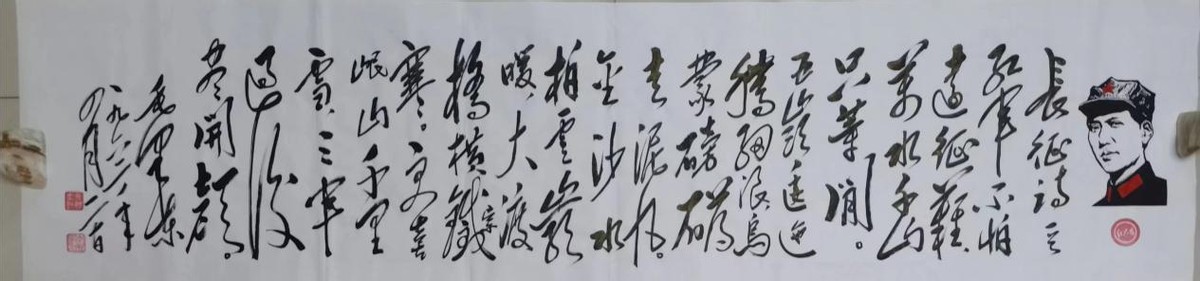 長征詩
紅軍不怕
遠征難
萬水千山
只等閒。
五嶺逶迤
騰細浪烏
蒙磅礴
走泥丸。
金沙水
拍雲崖
暖,大渡
橋橫鐵索
寒。更喜
岷山千里
雪,三軍
過後
盡開顏。
毛澤東
一九六二年
四月二十日